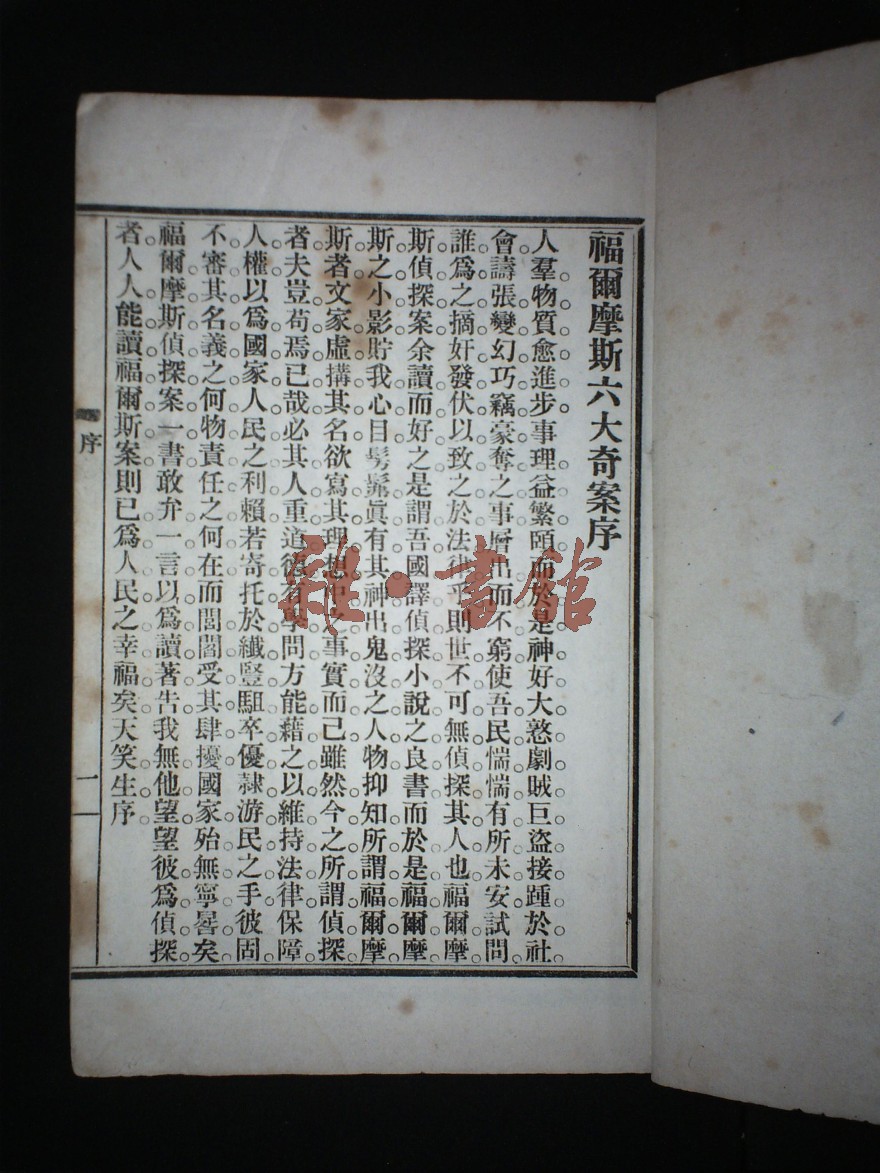 福爾摩斯六大奇案序
人羣物質愈進步事理益繁賾而於是神奸大憝劇賊巨盜接踵於社
會譸張變幻巧竊豪奪之事層出而不窮使吾民惴惴有所未安試問
誰爲之摘奸發伏以致之於法律乎則世不可無偵探其人也福爾摩
斯偵探案余讀而好之是謂吾國譯偵探小說之良書而於是福爾摩
斯之小影貯我心目髣髴眞有其神出鬼沒之人物抑知所謂福爾摩
斯者文家虛搆其名欲寫其理想中之事實而已雖然今之所謂偵探
者夫豈苟焉已哉必其人重道德有學問方能藉之以維持法律保障
人權以爲國家人民之利賴若寄托於纖豎駔卒優隸游民之手彼固
不審其名義之何物責任之何在而閭閻受其肆擾國家殆無寧晷矣
福爾摩斯偵探案一書敢弁一言以爲讀著告我無他望望彼爲偵探
者人人能讀福爾斯案則已爲人民之幸福矣天笑生序
序
一
雜·書館